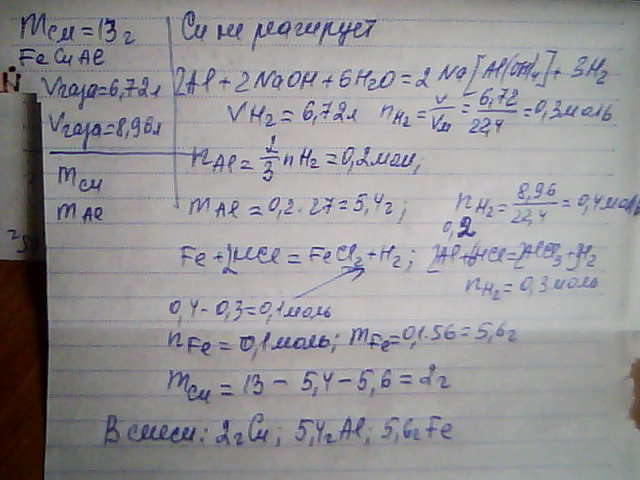 mсм = 13 г
Fe Cu Al
Vгаза = 6,72 л
Vгаза = 8,96 л
mCu
mAl
Cu не реагирует
2Al + 2NaOH + 6H2O = 2Na[Al(OH)4] + 3H2
VH2 = 6,72 л nH2 = V/Vм = 6,72/22,4 = 0,3 моль
nAl = 2/3 nH2 = 0,2 моль;
mAl = 0,2 · 27 = 5,4 г; nH2 = 8,96/22,4 = 0,4 моль
0,2
Fe + 2HCl = FeCl2 + H2; 2Al + 6HCl = 2AlCl3 + 3H2
nH2 = 0,3 моль
0,4 - 0,3 = 0,1 моль
nFe = 0,1 моль; mFe = 0,1 · 56 = 5,6 г
mCu = 13 - 5,4 - 5,6 = 2 г
В смеси: 2 г Cu; 5,4 г Al; 5,6 г Fe